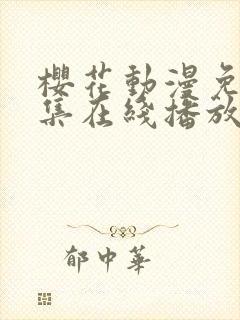 櫻花動漫免
集在綫播放
郁中華